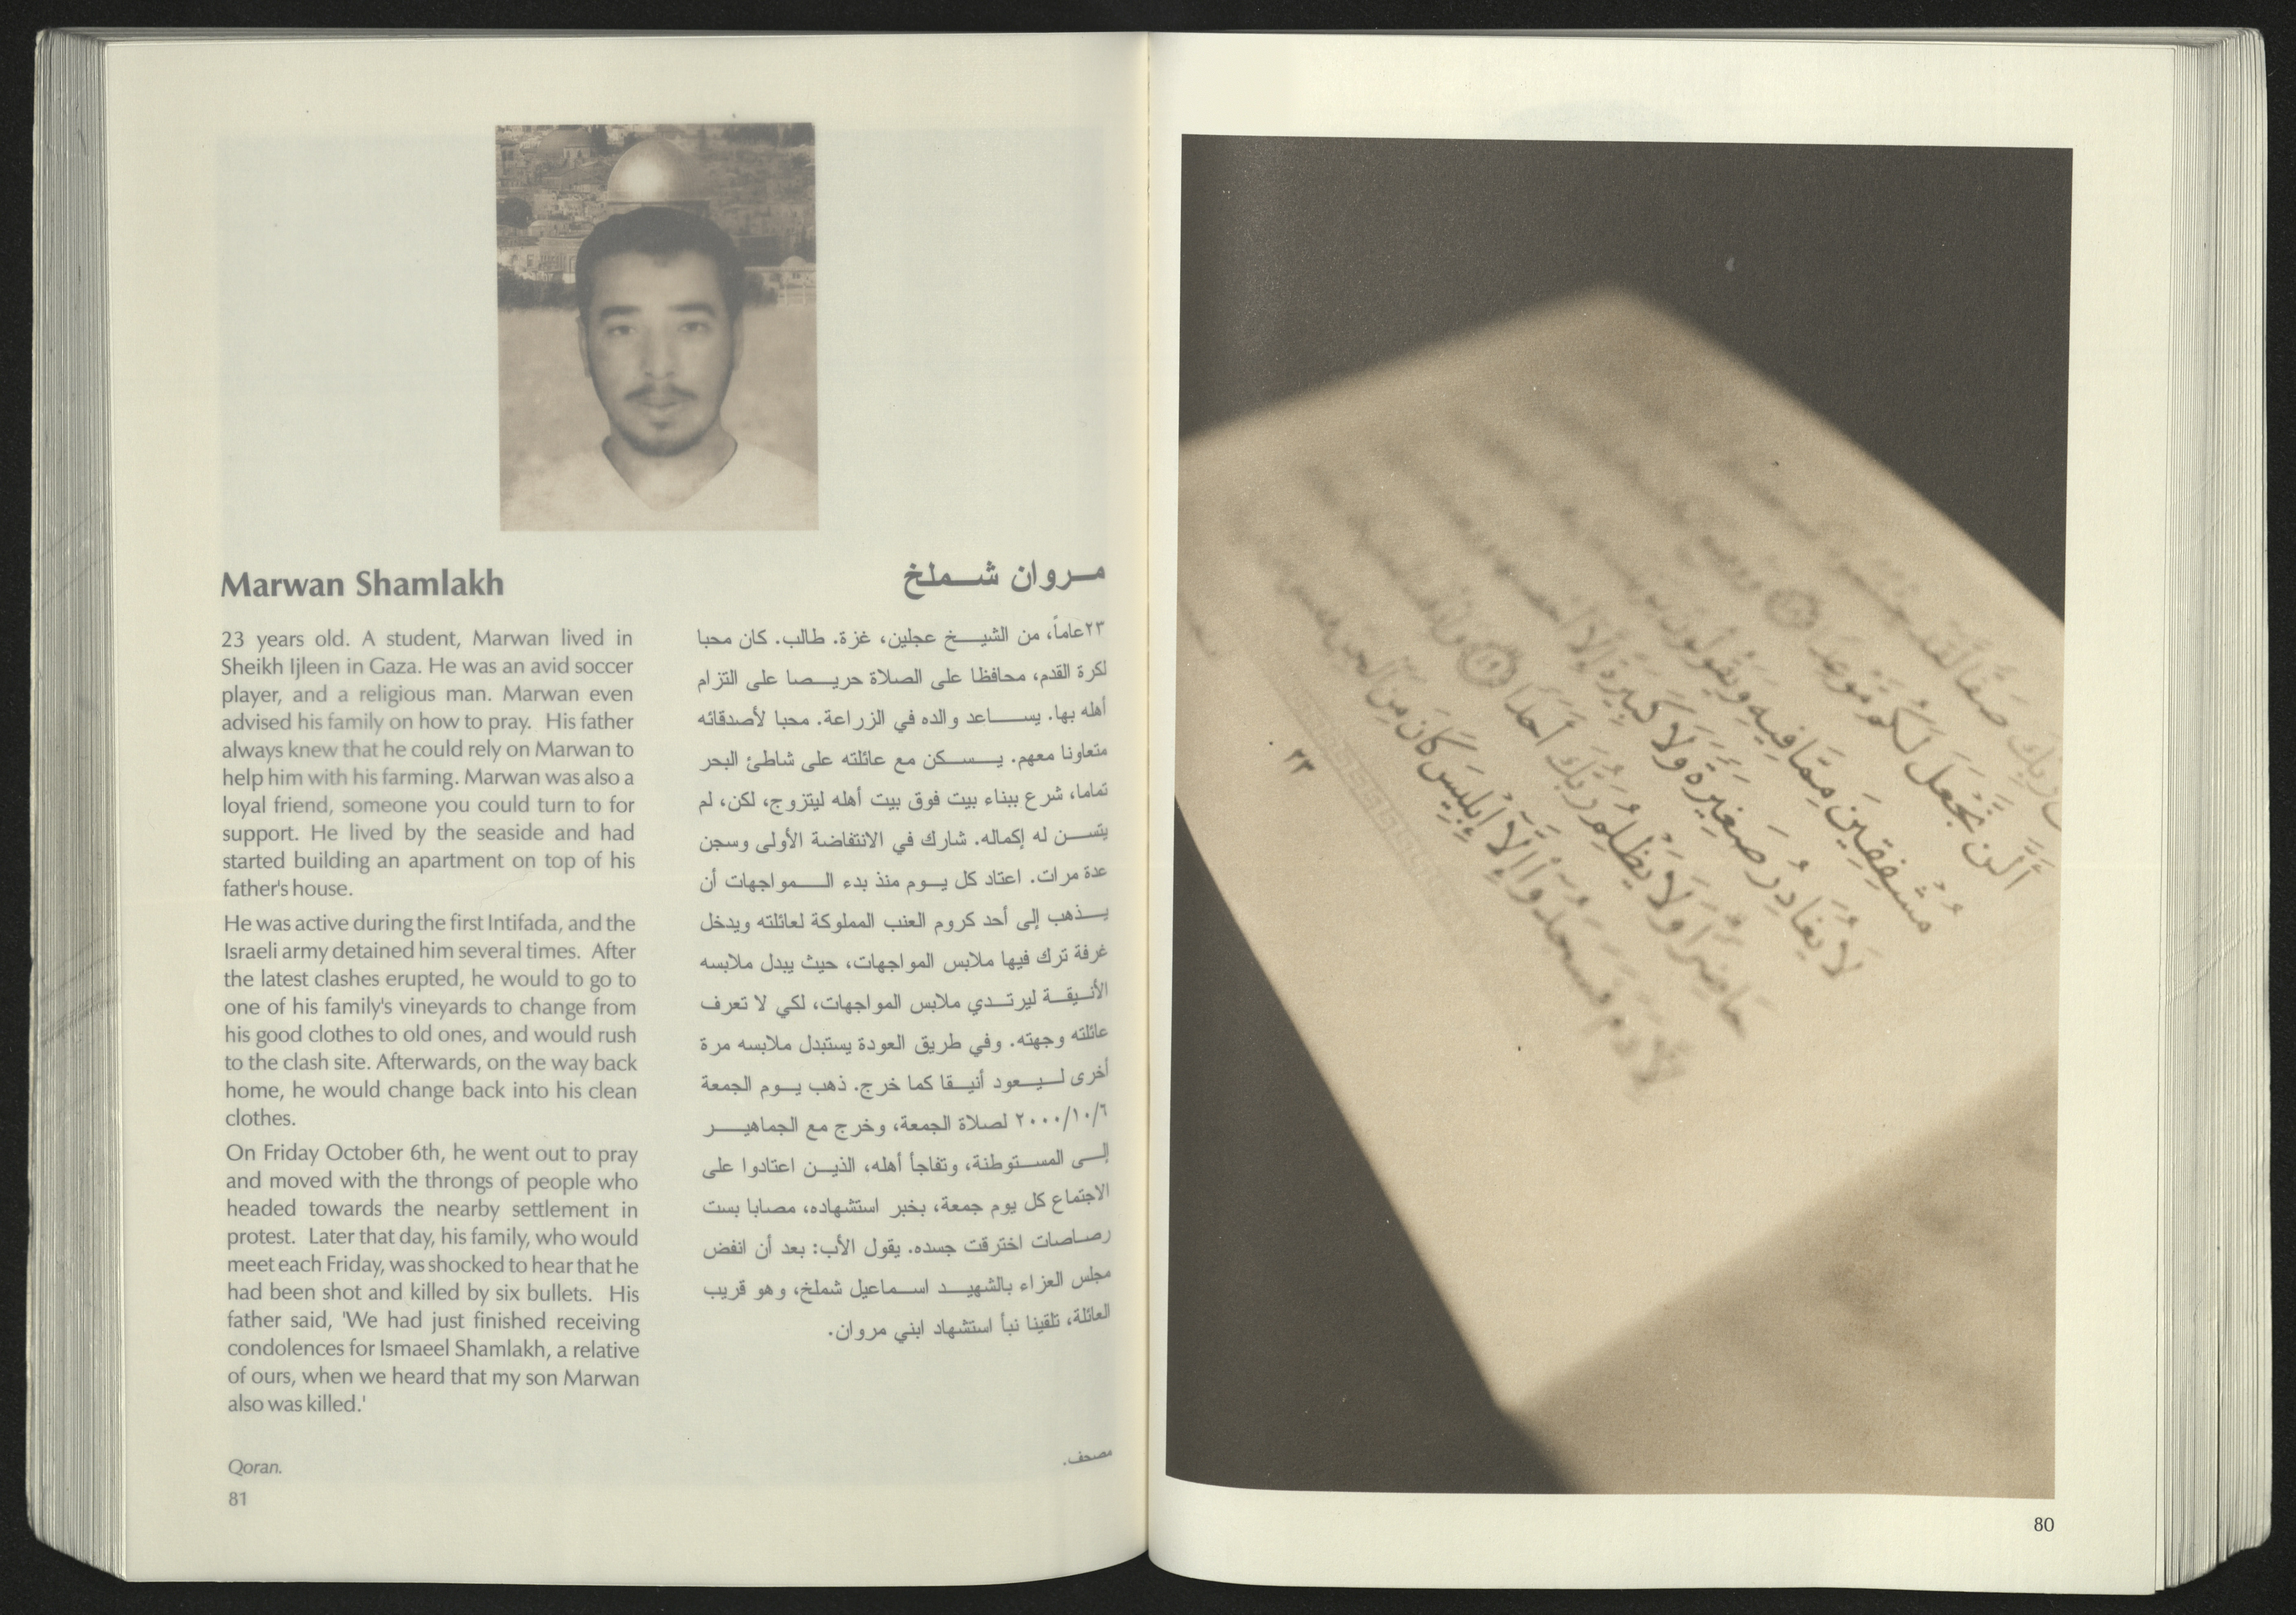 Marwan Shamlakh
23 years old. A student, Marwan lived in
Sheikh Ijleen in Gaza. He was an avid soccer
player, and a religious man. Marwan even
advised his family on how to pray. His father
always knew that he could rely on Marwan to
help him with his farming. Marwan was also a
loyal friend, someone you could turn to for
support. He lived by the seaside and had
started building an apartment on top of his
father's house.
He was active during the first Intifada, and the
Israeli army detained him several times. After
the latest clashes erupted, he would to go to
one of his family's vineyards to change from
his good clothes to old ones, and would rush
to the clash site. Afterwards, on the way back
home, he would change back into his clean
clothes.
On Friday October 6th, he went out to pray
and moved with the throngs of people who
headed towards the nearby settlement in
protest. Later that day, his family, who would
meet each Friday, was shocked to hear that he
had been shot and killed by six bullets. His
father said, 'We had just finished receiving
condolences for Ismaeel Shamlakh, a relative
of ours, when we heard that my son Marwan
also was killed.'
Qoran.
81
مروان شملخ
٢٣عاماً، من الشيخ عجلين، غزة. طالب. كان محبا
لكرة القدم، محافظا على الصلاة حريصا على التزام
أهله بها. يساعد والده في الزراعة. محبا لأصدقائه
متعاونا معهم. يسكن مع عائلته على شاطئ البحر
تماما، شرع ببناء بيت فوق بيت أهله ليتزوج، لكن، لم
يتسن له إكماله. شارك في الانتفاضة الأولى وسجن
عدة مرات. اعتاد كل يوم منذ بدء المواجهات أن
يذهب إلى أحد كروم العنب المملوكة لعائلته ويدخل
غرفة ترك فيها ملابس المواجهات، حيث يبدل ملابسه
الأنيقة ليرتدي ملابس المواجهات، لكي لا تعرف
عائلته وجهته. وفي طريق العودة يستبدل ملابسه مرة
أخرى ليعود أنيقا كما خرج. ذهب يوم الجمعة
٢٠٠٠/١٠/٦ لصلاة الجمعة، وخرج مع الجماهير
إلى المستوطنة، وتفاجأ أهله، الذين اعتادوا على
الاجتماع كل يوم جمعة، بخبر استشهاده، مصابا بست
رصاصات اخترقت جسده. يقول الأب: بعد أن انفض
مجلس العزاء بالشهيد اسماعيل شملخ، وهو قريب
العائلة، تلقينا نبأ استشهاد ابني مروان.
مصحف.
رَبِّكَ صَفًّا لَّقَدْ
أَلَّن نَّجْعَلَ لَكُم مَّوْعِدًا
مُشْفِقِينَ مِمَّا فِيهِ وَيَقُولُونَ
لَا يُغَادِرُ صَغِيرَةً وَلَا كَبِيرَةً إِلَّا
حَاضِرًا وَلَا يَظْلِمُ رَبُّكَ أَحَدًا ٤٩
لِآدَمَ فَسَجَدُوا إِلَّا إِبْلِيسَ كَانَ مِنَ الْجِنِّ
٢٣
80